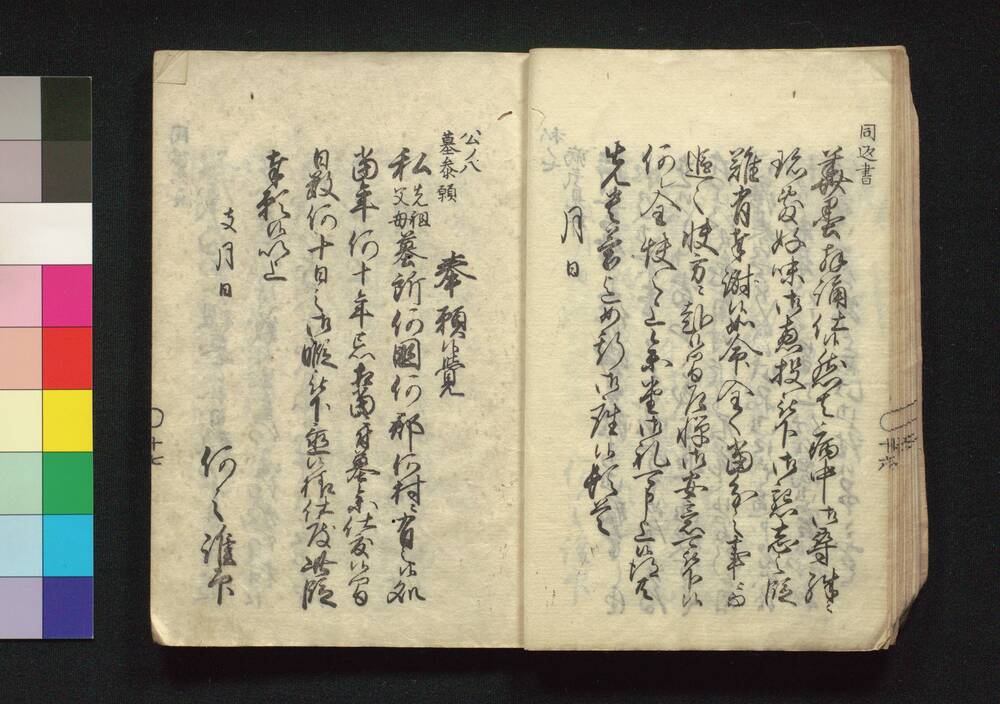 同返書
華墨拝誦仕候然者病中御尋殊ニ
珍敷好味御恵投被下御懇志之段
難有奉謝候如命全ク当分之事ニ而
追々快方ニ趣候間乍憚御安意可被下候
何レ全快之上参堂御礼可申上候
先者
月日
公ノ八
墓参願
奉願候覚
私先祖父母墓所何国何郡何村ニ有之候処
当年何十年忌相当ニ付墓参仕度候間
日数何十日之御暇被下置候様仕度此段
奉願候以上
支月日
何之誰印